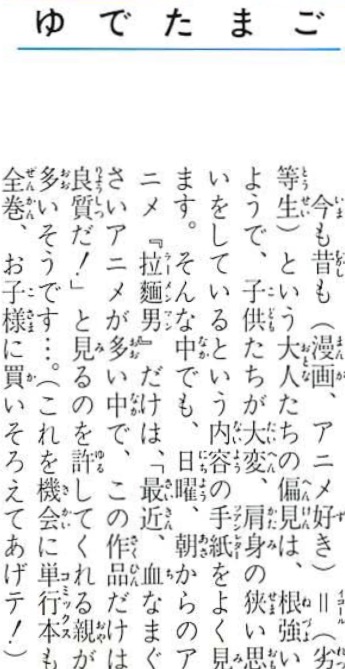 ゆでたまご
今も昔も（漫画、アニメ好き）＝（劣
等生）という大人たちの偏見は、根強い
ようで、子供たちが大変、肩身の狭い思
いをしているという内容の手紙をよく見
ます。そんな中でも、日曜、朝からのア
ニメ『拉麵男』だけは、「最近、血なまぐ
さいアニメが多い中で、この作品だけは
良質だ！」と見るのを許してくれる親が
多いそうです…。（これを機会に単行本も
全巻、お子様に買いそろえてあげテ！）